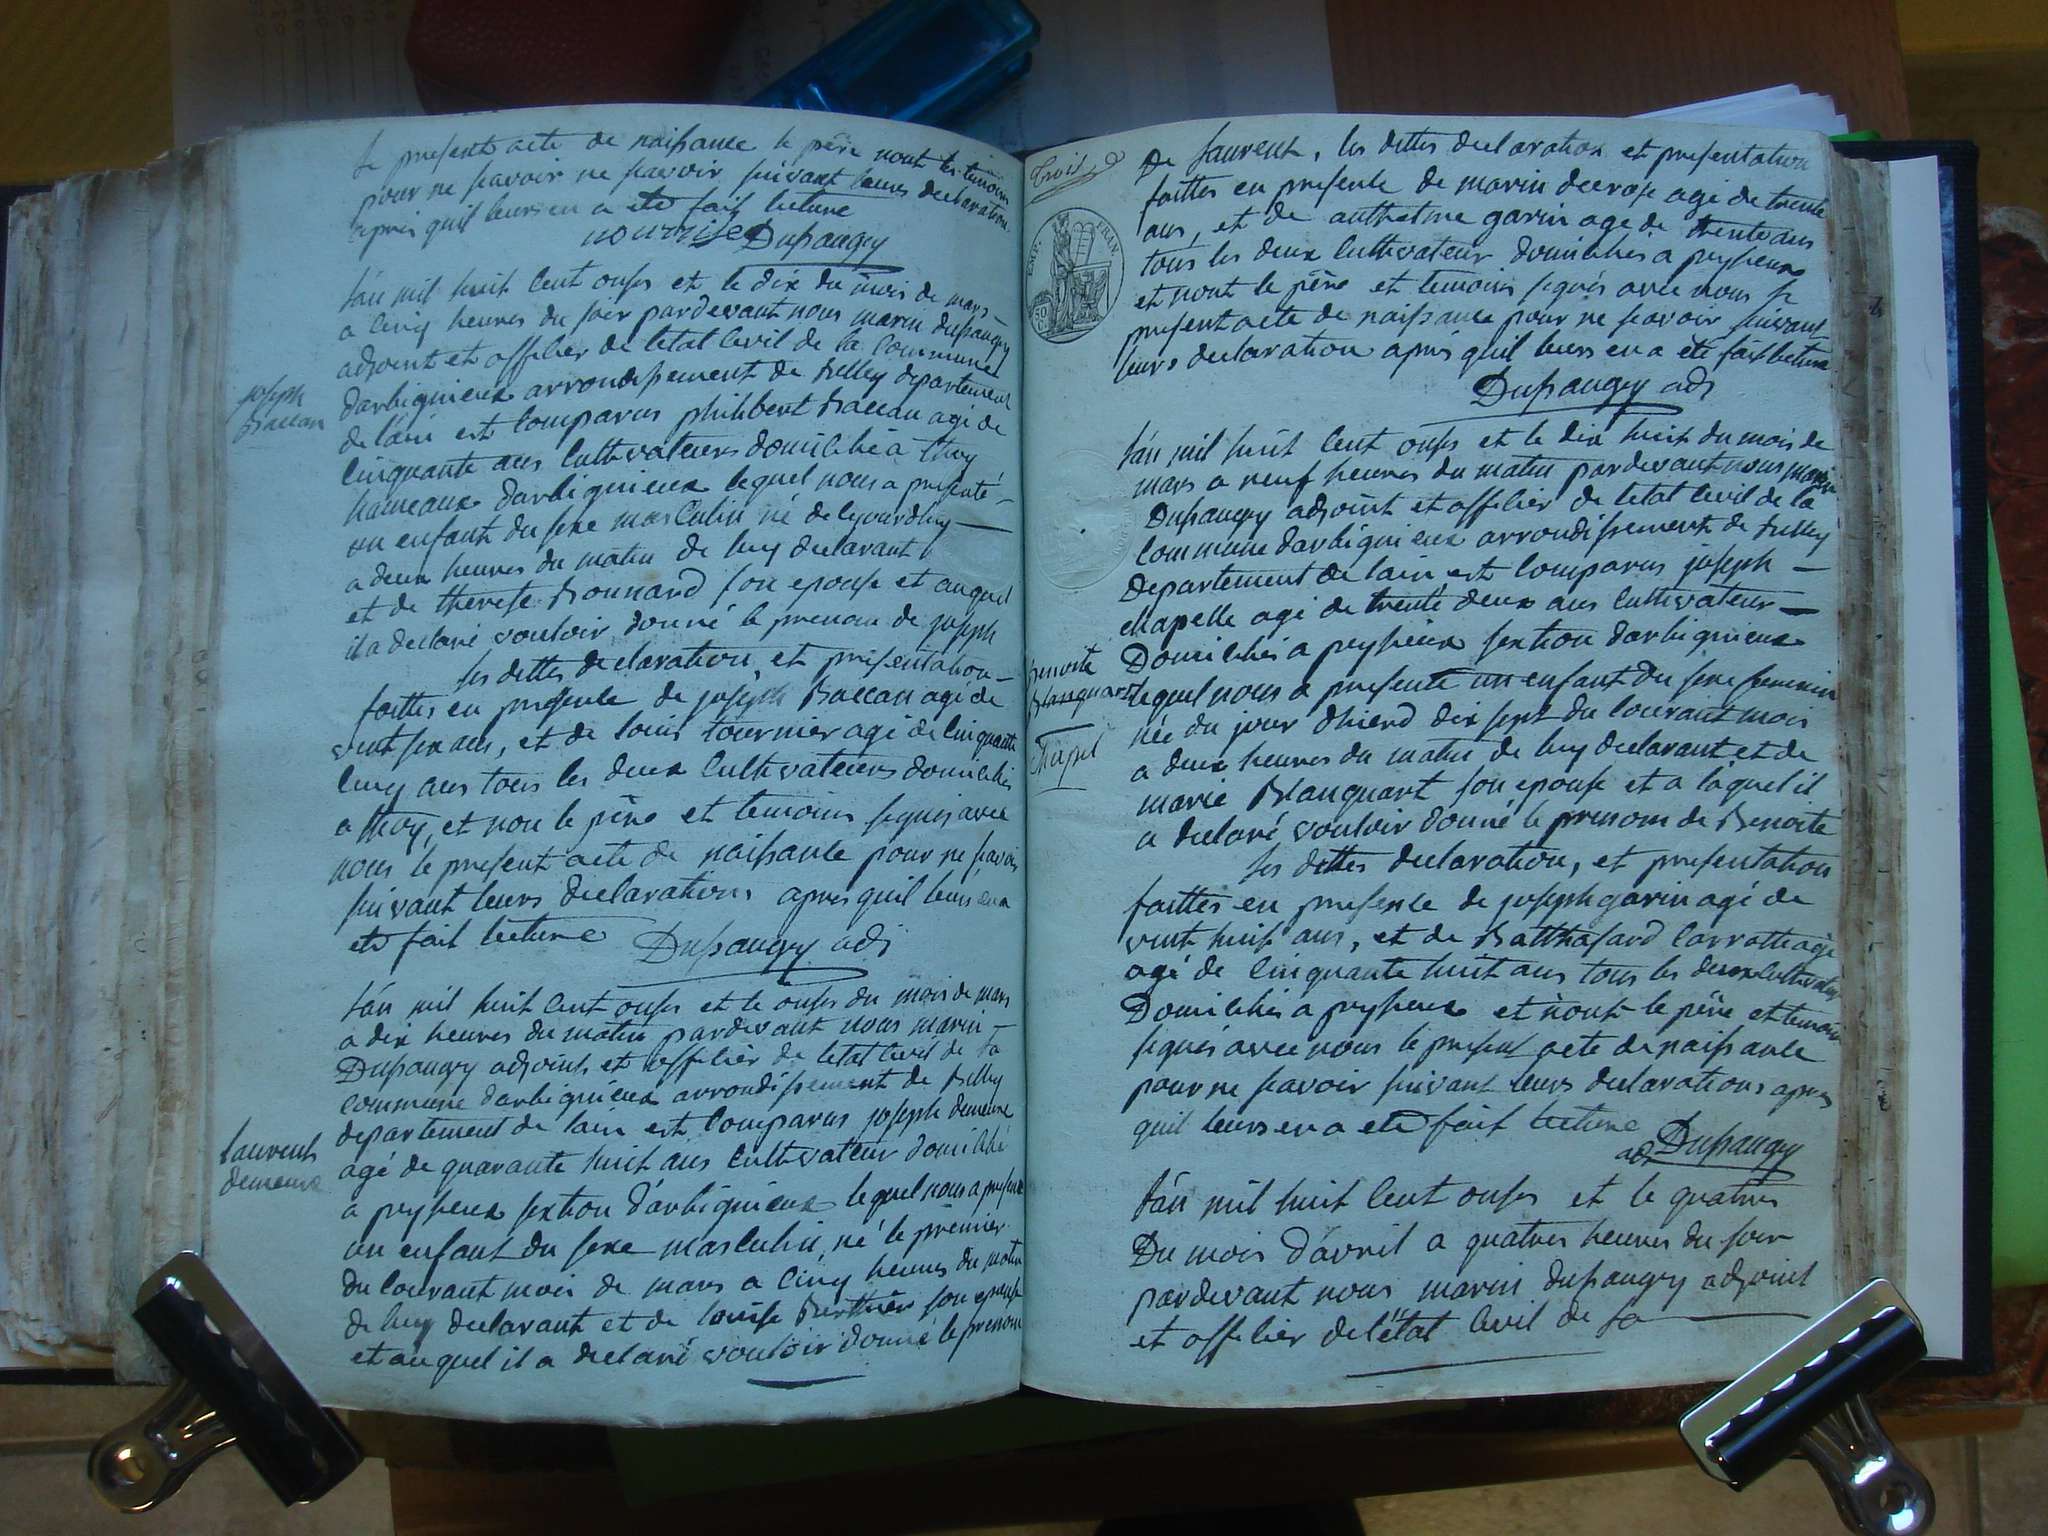 le present acte de naissance le père nont les temoins
pour ne scavoir ne scavoir suivant leurs declaration
après quil leurs en a eté fait lecture
Dupaugey
l'an mil huit cent onse et le dix du mois de mars
a cinq heures du soir pardevant nous marin dupaugey
adjoint et officier de letat civil de la commune
darbignieux arrondissement de belley departement
de l'ain est comparus philibert Baccan agé de
cinquante ans cultivateurs domicilié a thoy
hameaux darbignieux lequel nous a presenté
un enfant du sexe masculin né de ce jourdhuy
a deux heures du matin de luy declarant
et de therese Bonnard son epouse et auquel
il a declaré vouloir donné le prenom de joseph
les dittes declaration et presentation
faittes en presente de joseph Baccan agé de
vint six ans, et de louis tournier agé de cinquante
cinq ans tous les deux cultivateurs domicilié
a thoy, et non le père et temoins signés avec
nous le present acte de naissance pour ne scavoir
suivant leurs declarations apres quil leurs en a
eté fait lecture Dupaugey adj
joseph
Baccan
l'an mil huit cent onse et le onse du mois de mars
a dix heures du matin pardevant nous marin
Dupaugey adjoint et officier de letat civil de la
commune darbignieux arrondissement de belley
departement de lain est comparus joseph demeure
agé de quarante huit ans cultivateur domicilié
a peyzieux sextion d'arbignieux lequel nous a presenté
un enfant du sexe masculin, né le premier
du courant mois de mars a cinq heures du matin
de luy declarant et de louise Berthier son epouse
et auquel il a declaré vouloir donné le prenom
laurent
demeure
trois
EMP. FRAN.
50 C
De laurent, les dittes declaration et presentation
faittes en presente de marin decrose agé de trente
ans, et de anthelme garin agé de trente ans
tous les deux cultivateur domiciliés a peyzieux
et nont le père et temoins signés avec nous le
present acte de naissance pour ne scavoir suivant
leurs declaration après quil leurs en a été fait lecture
Dupaugey adj
l'an mil huit cent onse et le dix huit du mois de
mars a neuf heures du matin pardevant nous marin
Dupaugey adjoint et officier de letat civil de la
commune darbignieux arrondissement de belley
departement de lain est comparus joseph
chapelle agé de trente deux ans cultivateur
Domiciliés a peyzieux sextion darbignieux
lequel nous a presenté un enfant du sexe feminin
née du jour dhierd dix sept du courant mois
a deux heures du matin de luy declarant et de
marie Blanquart son epouse et a laquel il
a declaré vouloir donné le prenom de Benoite
les dittes declaration, et presentation
faittes en presente de joseph garin agé de
vint huit ans, et de Balthasard
agé de cinquante huit ans tous les deux cultivateur
Domiciliés a peyzieux et nont le père et temoins
signés avec nous le present acte de naissance
pour ne scavoir suivant leurs declarations apres
quil leurs en a eté fait lecture
adj Dupaugey
benoite
Blanquart
Chapel
l'an mil huit cent onse et le quatres
Du mois d'avril a quatres heures du soir
pardevant nous marin dupaugey adjoint
et officier de l'état civil de la